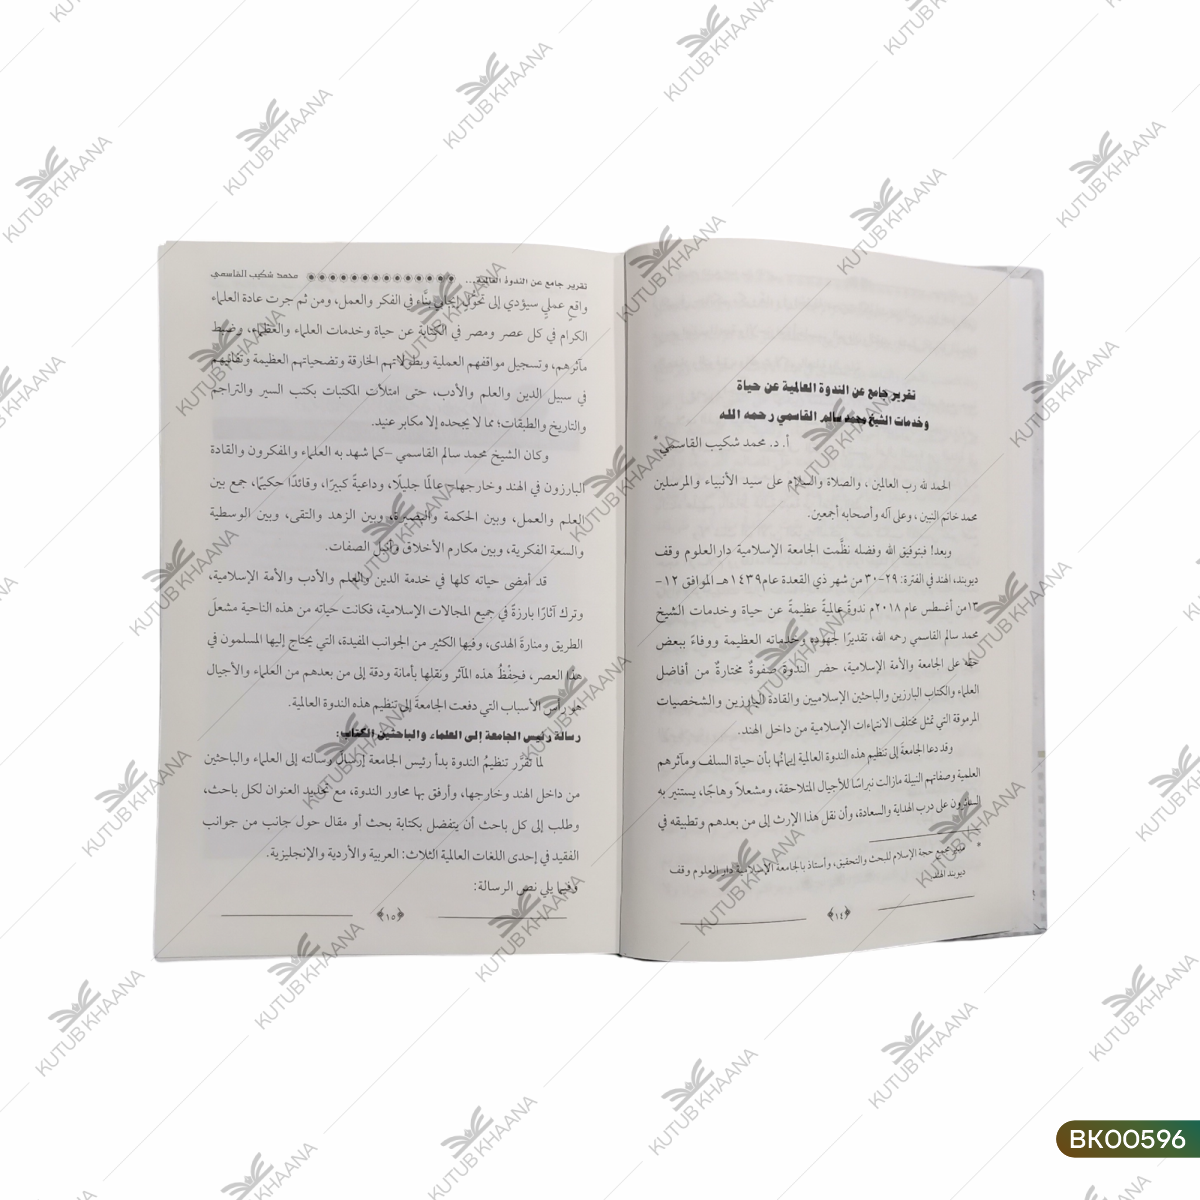 تقرير جامع عن الندوة العالمية عن حياة
وخدمات الشيخ محمد سالم القاسمي رحمه الله
أ. د. محمد شكيب القاسمي*
الحمد لله رب العالمين، والصلاة والسلام على سيد الأنبياء والمرسلين
محمد خاتم النبيين، وعلى آله وأصحابه أجمعين.
وبعد! فبتوفيق الله وفضله نظَّمت الجامعة الإسلامية دارالعلوم وقف
ديوبند، الهند في الفترة: ٢٩-٣٠ من شهر ذي القعدة عام ١٤٣٩هـ الموافق ١٢-
١٣من أغسطس عام ٢٠١٨م ندوةً عالميةً عظيمة عن حياة وخدمات الشيخ
محمد سالم القاسمي رحمه الله، تقديرًا لجهوده وخدماته العظيمة ووفاءً ببعض
حقه على الجامعة والأمة الإسلامية، حضر الندوة صفوةٌ مختارةٌ من أفاضل
العلماء والكتاب البارزين والباحثين الإسلاميين والقادة البارزين والشخصيات
المرموقة التي تمثل مختلف الانتماءات الإسلامية من داخل الهند.
وقد دعا الجامعةَ إلى تنظيم هذه الندوة العالمية إيمانُها بأن حياة السلف ومآثرهم
العلمية وصفاتهم النبيلة مازالت نبراسًا للأجيال المتلاحقة، ومشعلاً وهاجًا، يستنير به
السائرون على درب الهداية والسعادة، وأن نقل هذا الإرث إلى من بعدهم وتطبيقه في
* مدير مجمع حجة الإسلام للبحث والتحقيق، وأستاذ بالجامعة الإسلامية دار العلوم وقف
ديوبند الهند.
﴿١٤﴾
تقرير جامع عن الندوة العالمية... محمد شكيب القاسمي
واقعٍ عمليٍ سيؤدي إلى تحوّلٍ إيجابي بنَّاء في الفكر والعمل، ومن ثم جرت عادة العلماء
الكرام في كل عصر ومصر في الكتابة عن حياة وخدمات العلماء والعظماء، وضبط
مآثرهم، وتسجيل مواقفهم العملية وبطولاتهم الخارقة وتضحياتهم العظيمة وتفانيهم
في سبيل الدين والعلم والأدب، حتى امتلأت المكتبات بكتب السير والتراجم
والتاريخ والطبقات؛ مما لا يجحده إلا مكابر عنيد.
وكان الشيخ محمد سالم القاسمي –كما شهد به العلماء والمفكرون والقادة
البارزون في الهند وخارجها– عالمًا جليلًا، وداعيةً كبيرًا، وقائدًا حكيمًا، جمع بين
العلم والعمل، وبين الحكمة والبصيرة، وبين الزهد والتقى، وبين الوسطية
والسعة الفكرية، وبين مكارم الأخلاق وأنبل الصفات.
قد أمضى حياته كلها في خدمة الدين والعلم والأدب والأمة الإسلامية،
وترك آثارًا بارزةً في جميع المجالات الإسلامية، فكانت حياته من هذه الناحية مشعلَ
الطريق ومنارةَ الهدى، وفيها الكثير من الجوانب المفيدة، التي يحتاج إليها المسلمون في
هذا العصر، فحِفْظُ هذه المآثر ونقلها بأمانة ودقة إلى من بعدهم من العلماء والأجيال
هو رأس الأسباب التي دفعت الجامعةَ إلى تنظيم هذه الندوة العالمية.
رسالة رئيس الجامعة إلى العلماء والباحثين الكتاب:
لما تقَرَّر تنظيمُ الندوة بدأ رئيس الجامعة إرسال رسالته إلى العلماء والباحثين
من داخل الهند وخارجها، وأرفق بها محاور الندوة، مع تحديد العنوان لكل باحث،
وطلب إلى كل باحث أن يتفضل بكتابة بحث أو مقال حول جانب من جوانب
الفقيد في إحدى اللغات العالمية الثلاث: العربية والأردية والإنجليزية.
وفيما يلي نص الرسالة:
﴿١٥﴾
KUTUB KHAANA
BK00596